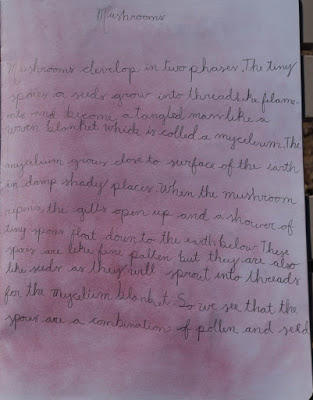 Mushrooms
Mushrooms develop in two phases. The tiny
spores or seeds grow into threadlike filame-
nts and become a tangled mass like a
woven blanket which is called a mycelium. The
mycelium grows close to surface of the earth
in damp shady places. When the mushroom
ripens, the gills open up and a shower of
tiny spores float down to the earth below. These
spores are like fine pollen but they are also
like seeds as they will sprout into threads
for the mycelium blanket. So we see that the
spores are a combination of pollen and seed